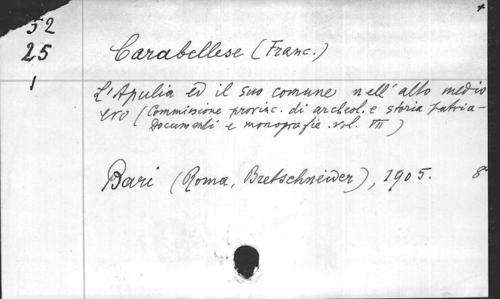 52
25
1
Carabellese (Franc.)
L'Apulia ed il suo comune nell'alto medio
evo (Commissione provinc. di archeol. e storia patria -
Documenti e monografie. vol. VII)
Bari (Roma, Bretschneider), 1905. 8°